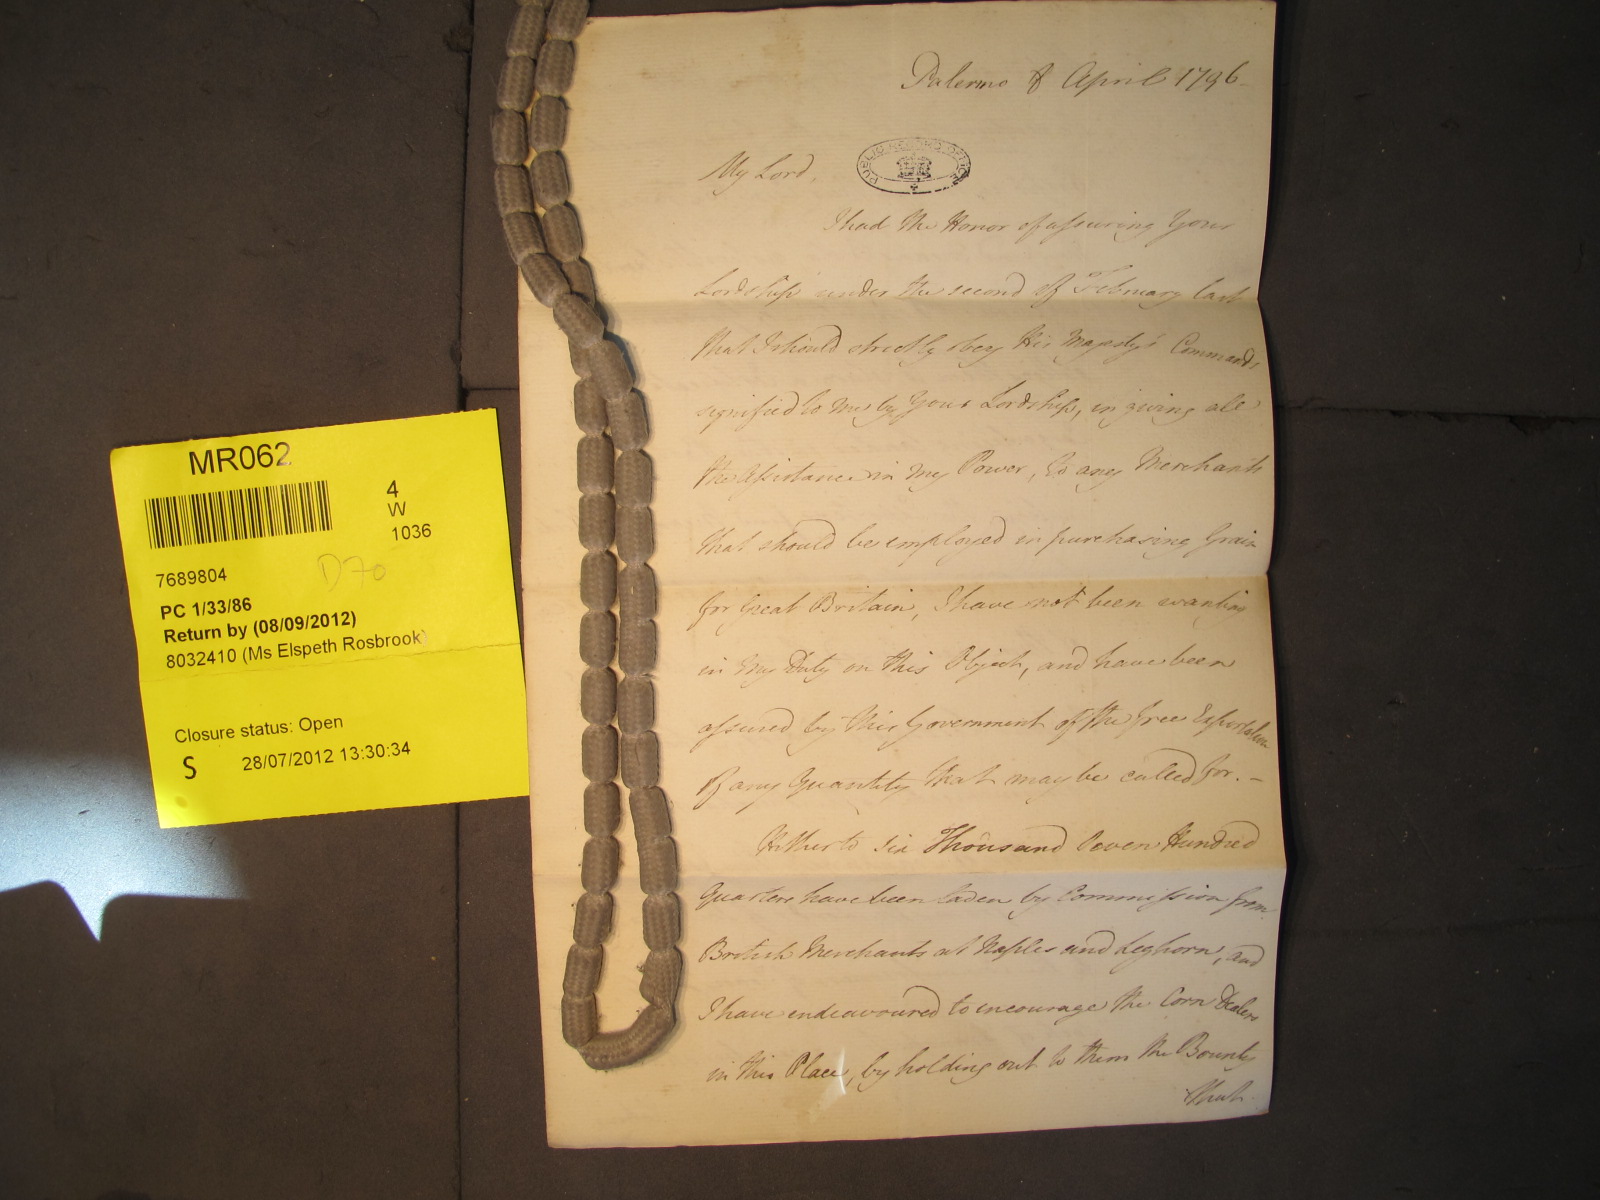 MR062
4
W
1036
7689804
D70
PC 1/33/86
Return by (08/09/2012)
8032410 (Ms Elspeth Rosbrook)
Closure status: Open
S
28/07/2012 13:30:34
Palermo 8 April 1796
PUBLIC RECORD OFFICE
My Lord,
I had the Honor of assuring Your
Lordship under the second of February last
that I should strictly obey His Majesty's Commands
signified to me by Your Lordship, in giving all
the Assistance in my Power, to any Merchants
that should be employed in purchasing Grain
for Great Britain, I have not been wanting
in my Duty on this Object, and have been
assured by this Government of the free Exportation
of any Quantity that may be called for. –
Hitherto Six Thousand Seven Hundred
Quarters have been laden by Commission from
British Merchants at Naples and Leghorn, and
I have endeavoured to encourage the Corn Dealers
in this Place, by holding out to them the Bounty
that